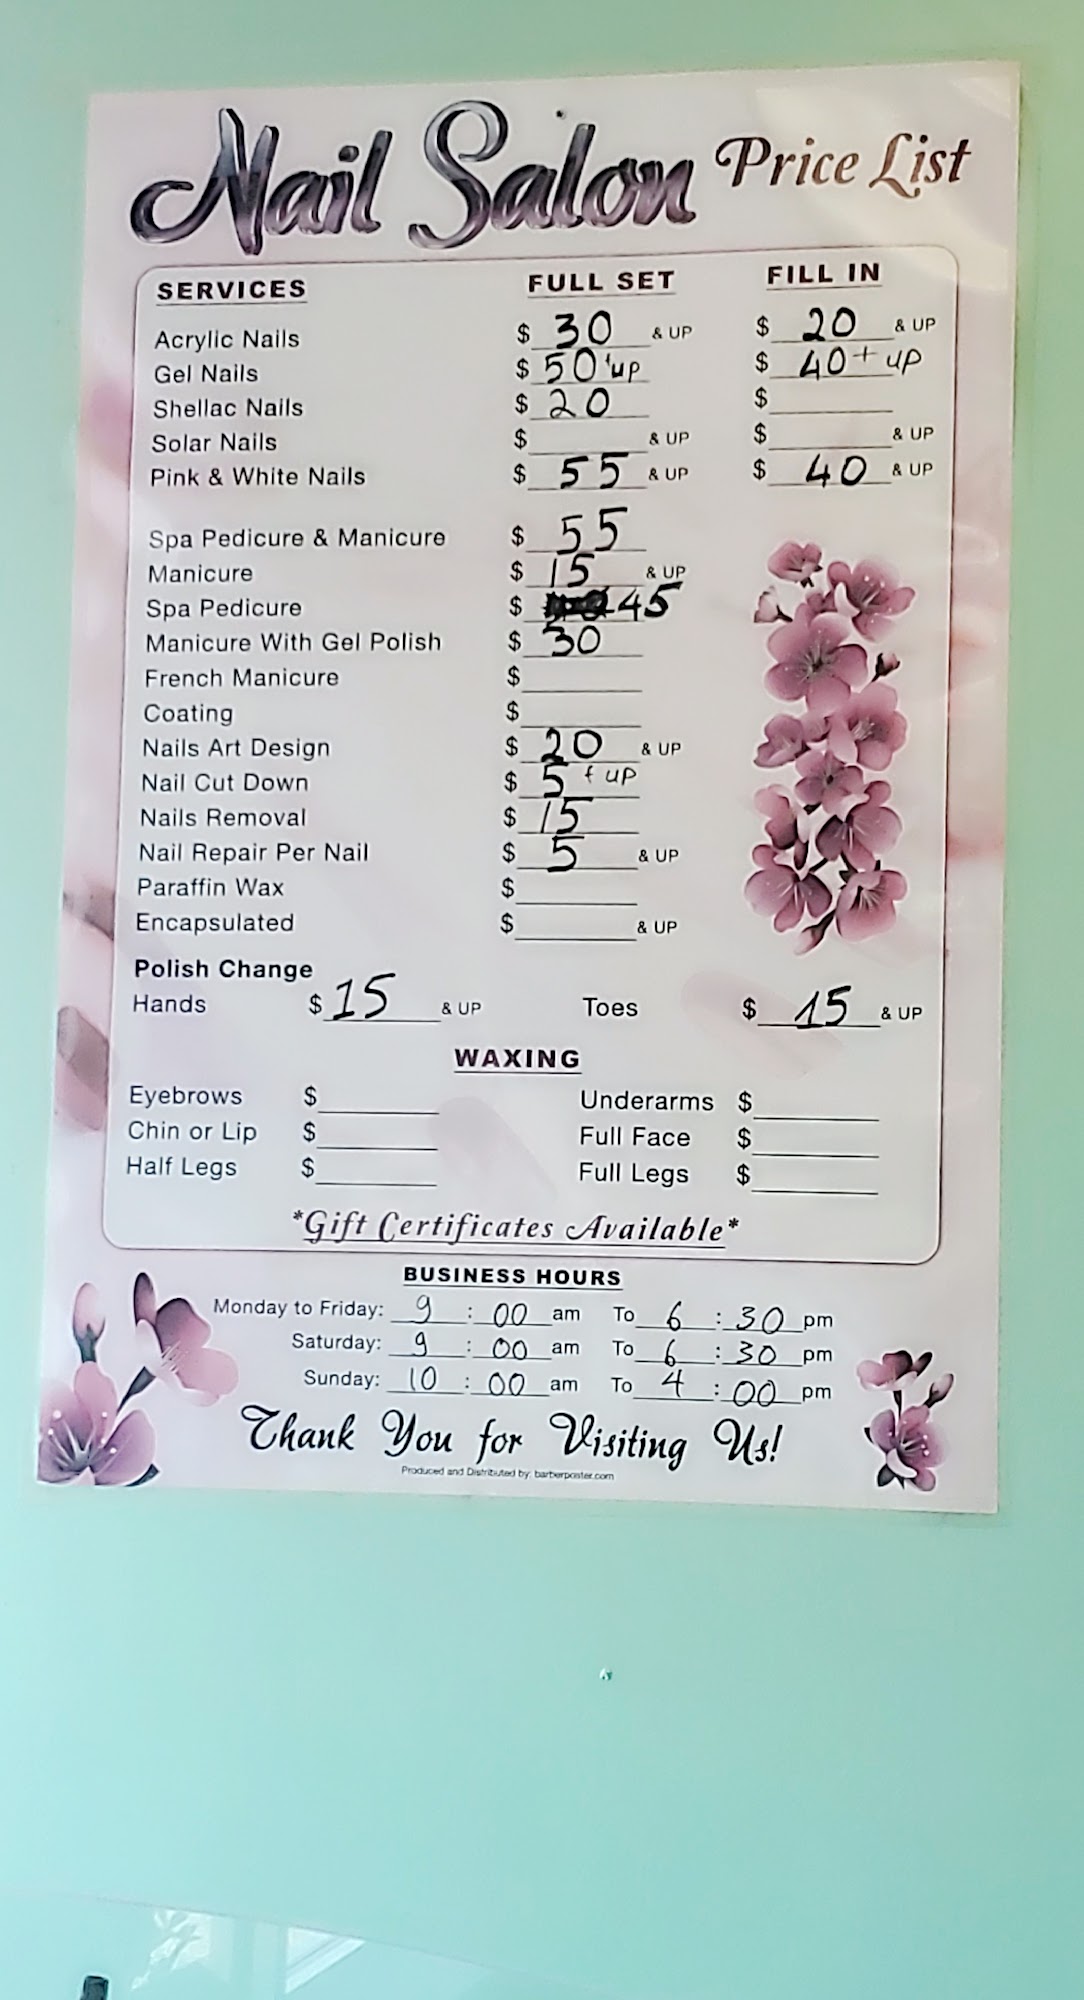 Nail Salon Price List
SERVICES FULL SET FILL IN
Acrylic Nails $ 30 & UP $ 20 & UP
Gel Nails $ 50 + up $ 40 + up
Shellac Nails $ 20 $
Solar Nails $ & UP $ & UP
Pink & White Nails $ 55 & UP $ 40 & UP
Spa Pedicure & Manicure $ 55
Manicure $ 15 & UP
Spa Pedicure $ 45
Manicure With Gel Polish $ 30
French Manicure $
Coating $
Nails Art Design $ 20 & UP
Nail Cut Down $ 5 + up
Nails Removal $ 15
Nail Repair Per Nail $ 5 & UP
Paraffin Wax $
Encapsulated $ & UP
Polish Change
Hands $ 15 & UP Toes $ 15 & UP
WAXING
Eyebrows $ Underarms $
Chin or Lip $ Full Face $
Half Legs $ Full Legs $
*Gift Certificates Available*
BUSINESS HOURS
Monday to Friday: 9 : 00 am To 6 : 30 pm
Saturday: 9 : 00 am To 6 : 30 pm
Sunday: 10 : 00 am To 4 : 00 pm
Thank You for Visiting Us!
Produced and Distributed by: barberposter.com